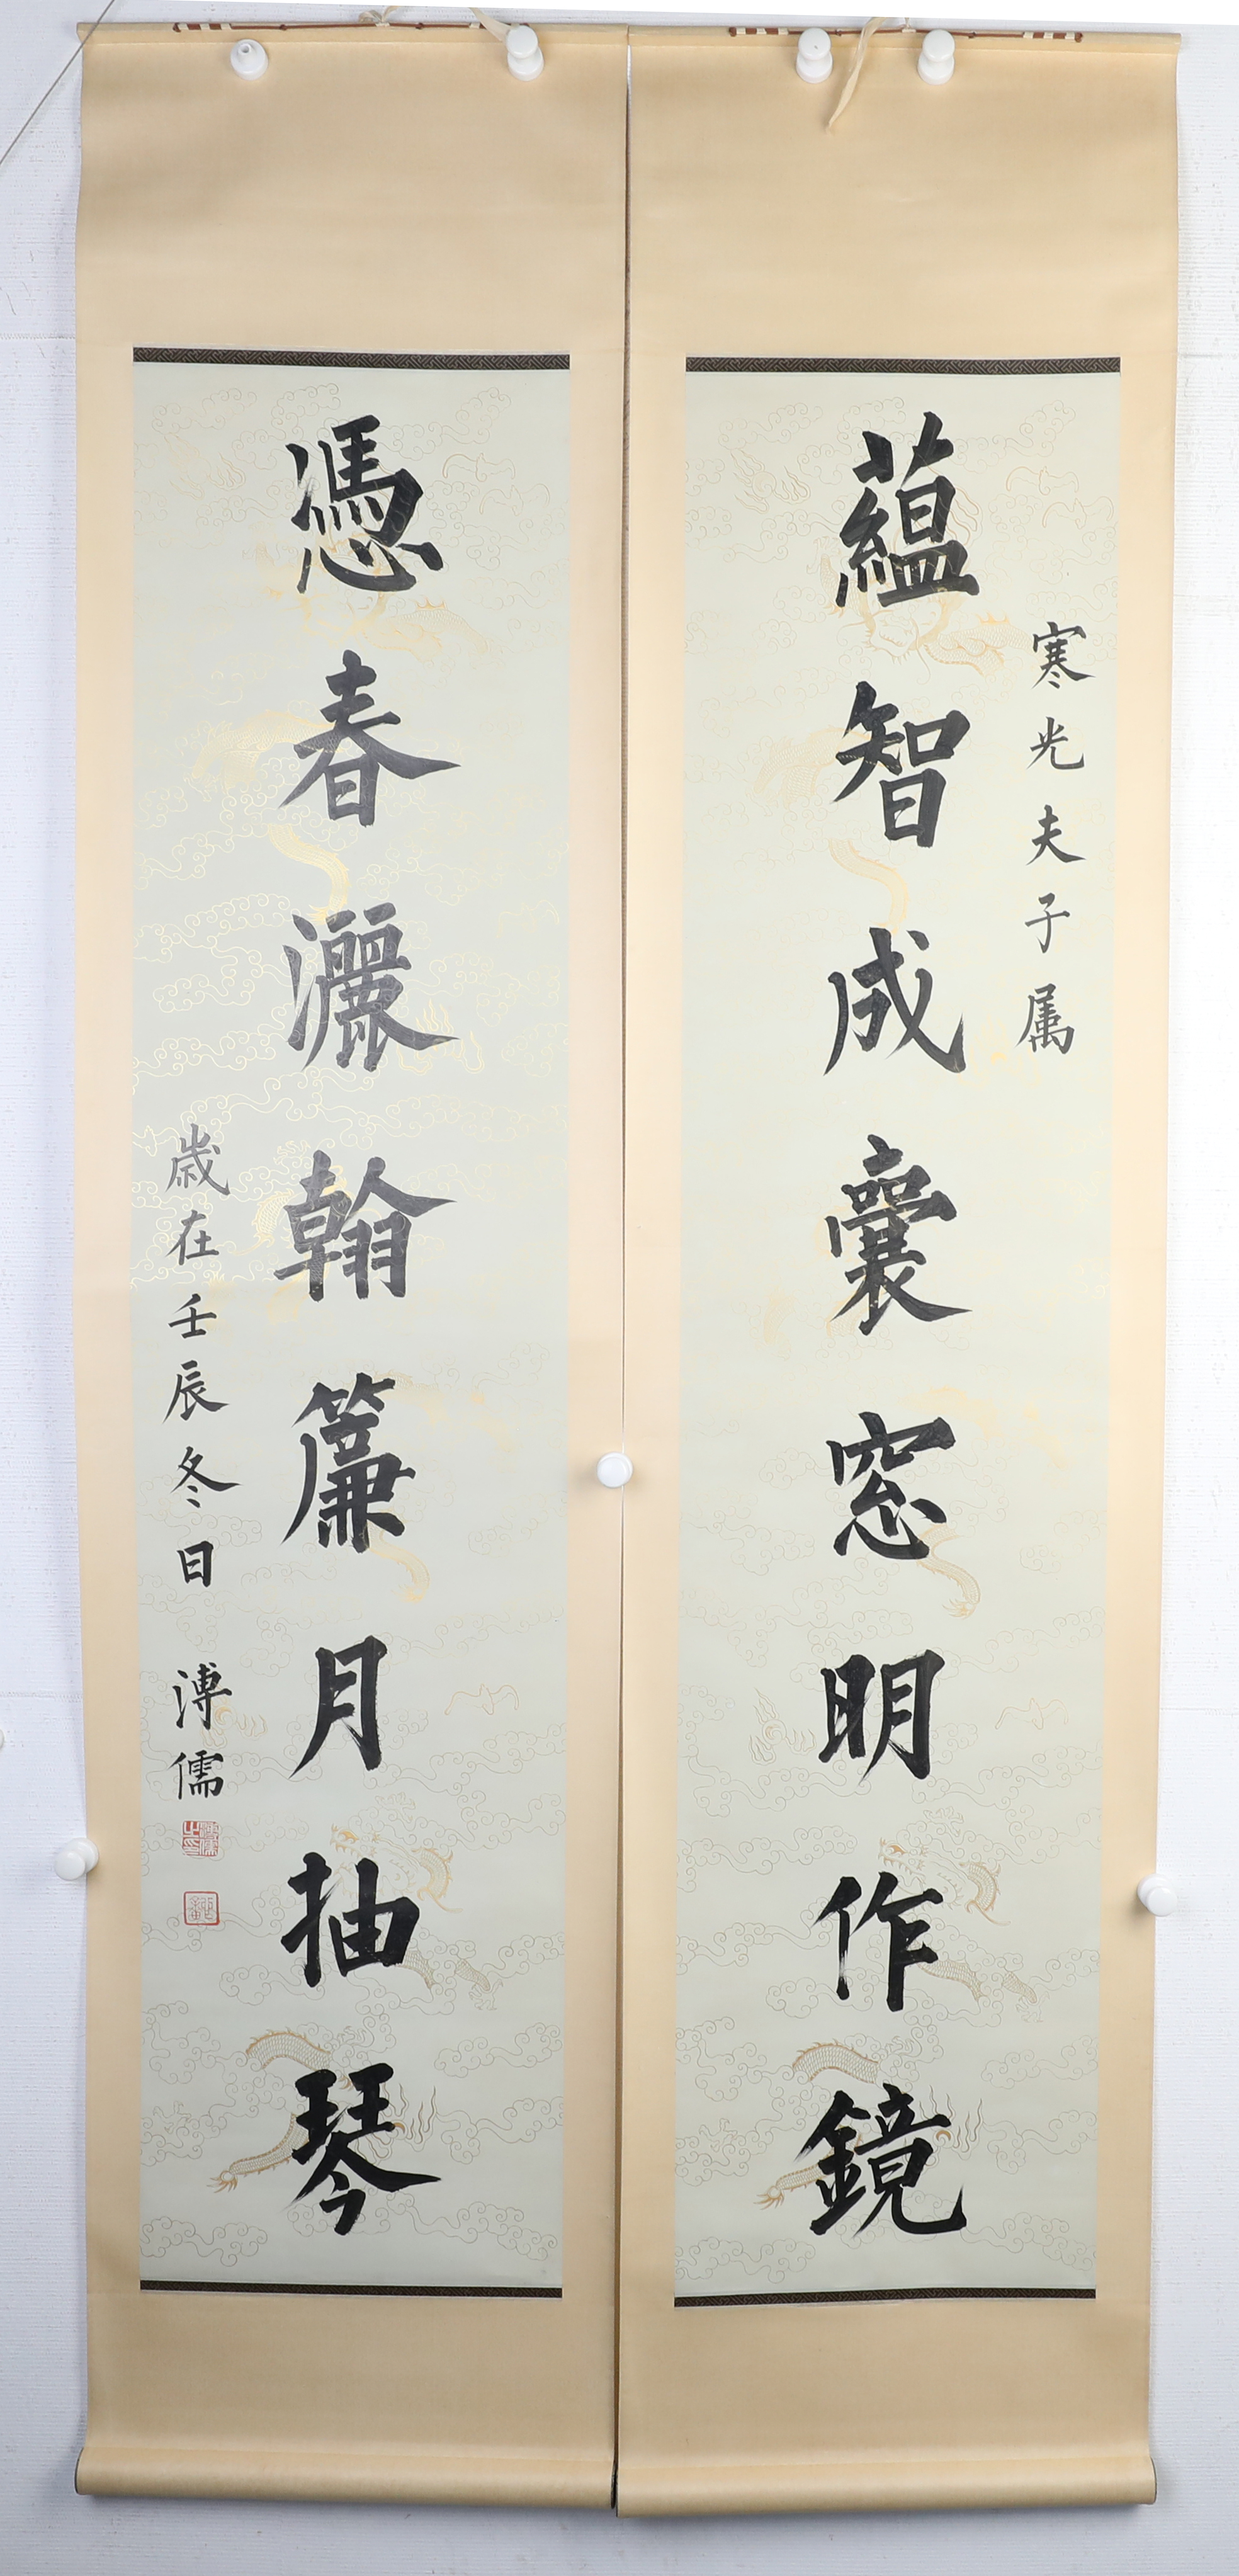 寒光夫子属
蘊智成囊窓明作鏡
憑春灑翰簾月抽琴
歲在壬辰冬日 溥儒
溥儒之印